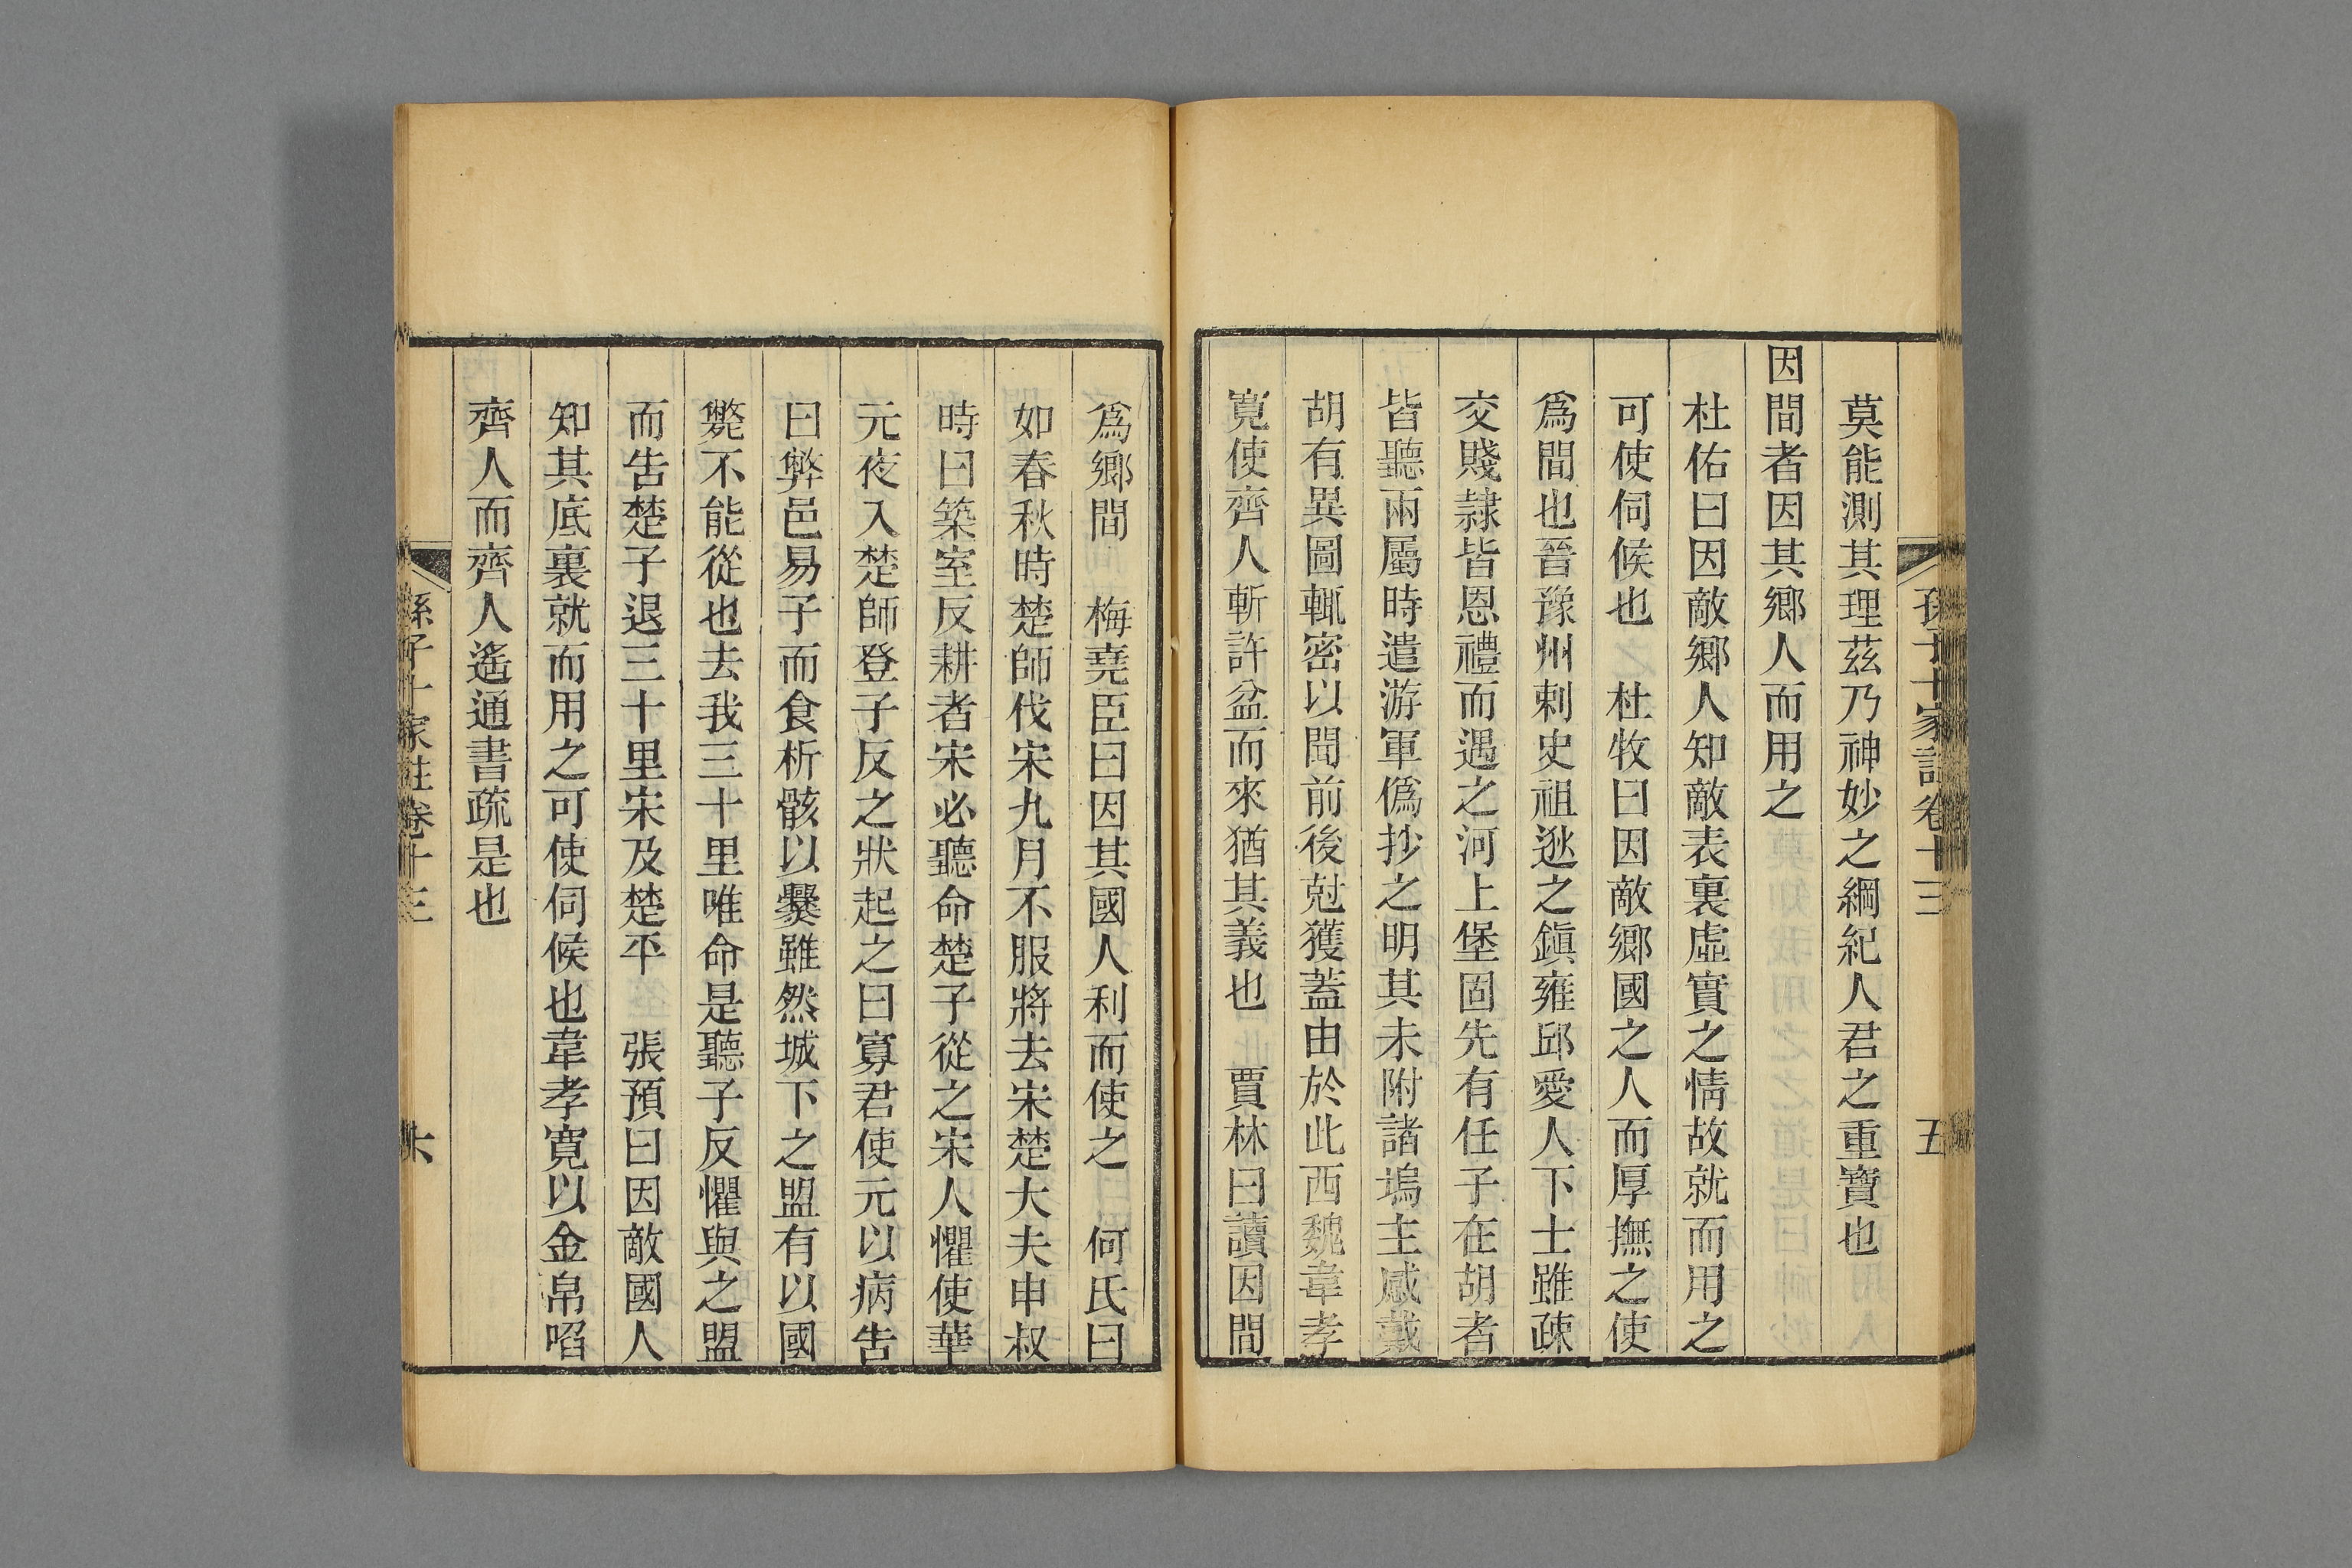 孫子十家註卷十三 五
莫能測其理茲乃神妙之綱紀人君之重寶也
因間者因其鄉人而用之
杜佑曰因敵鄉人知敵表裏虛實之情故就而用之
可使伺候也 杜牧曰因敵鄉國之人而厚撫之使
爲間也晉豫州刺史祖逖之鎭雍邱愛人下士雖疎
交賤隷皆恩禮而遇之河上堡固先有任子在胡者
皆聽兩屬時遣游軍僞抄之明其未附諸塢主感戴
胡有異圖輒密以聞前後尅獲蓋由於此西魏韋孝
寬使齊人斬許盆而來猶其義也 賈林曰讀因間
爲鄉間 梅堯臣曰因其國人利而使之 何氏曰
如春秋時楚師伐宋九月不服將去宋楚大夫申叔
時曰築室反耕者宋必聽命楚子從之宋人懼使華
元夜入楚師登子反之狀起之曰寡君使元以病告
曰弊邑易子而食析骸以爨雖然城下之盟有以國
斃不能從也去我三十里唯命是聽子反懼與之盟
而告楚子退三十里宋及楚平 張預曰因敵國人
知其底裏就而用之可使伺候也韋孝寬以金帛啗
齊人而齊人遙通書疏是也
孫子十家註卷十三 六